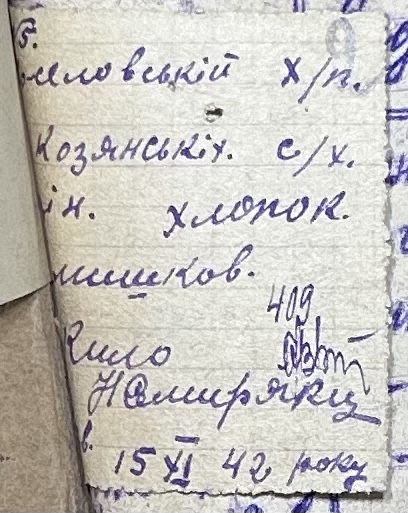 5.
еловській х/п.
9
Козянськіх. с/х.
ін. хлопок.
мишков.
409
Кило
Немиряки
в. 15 XI 42 року